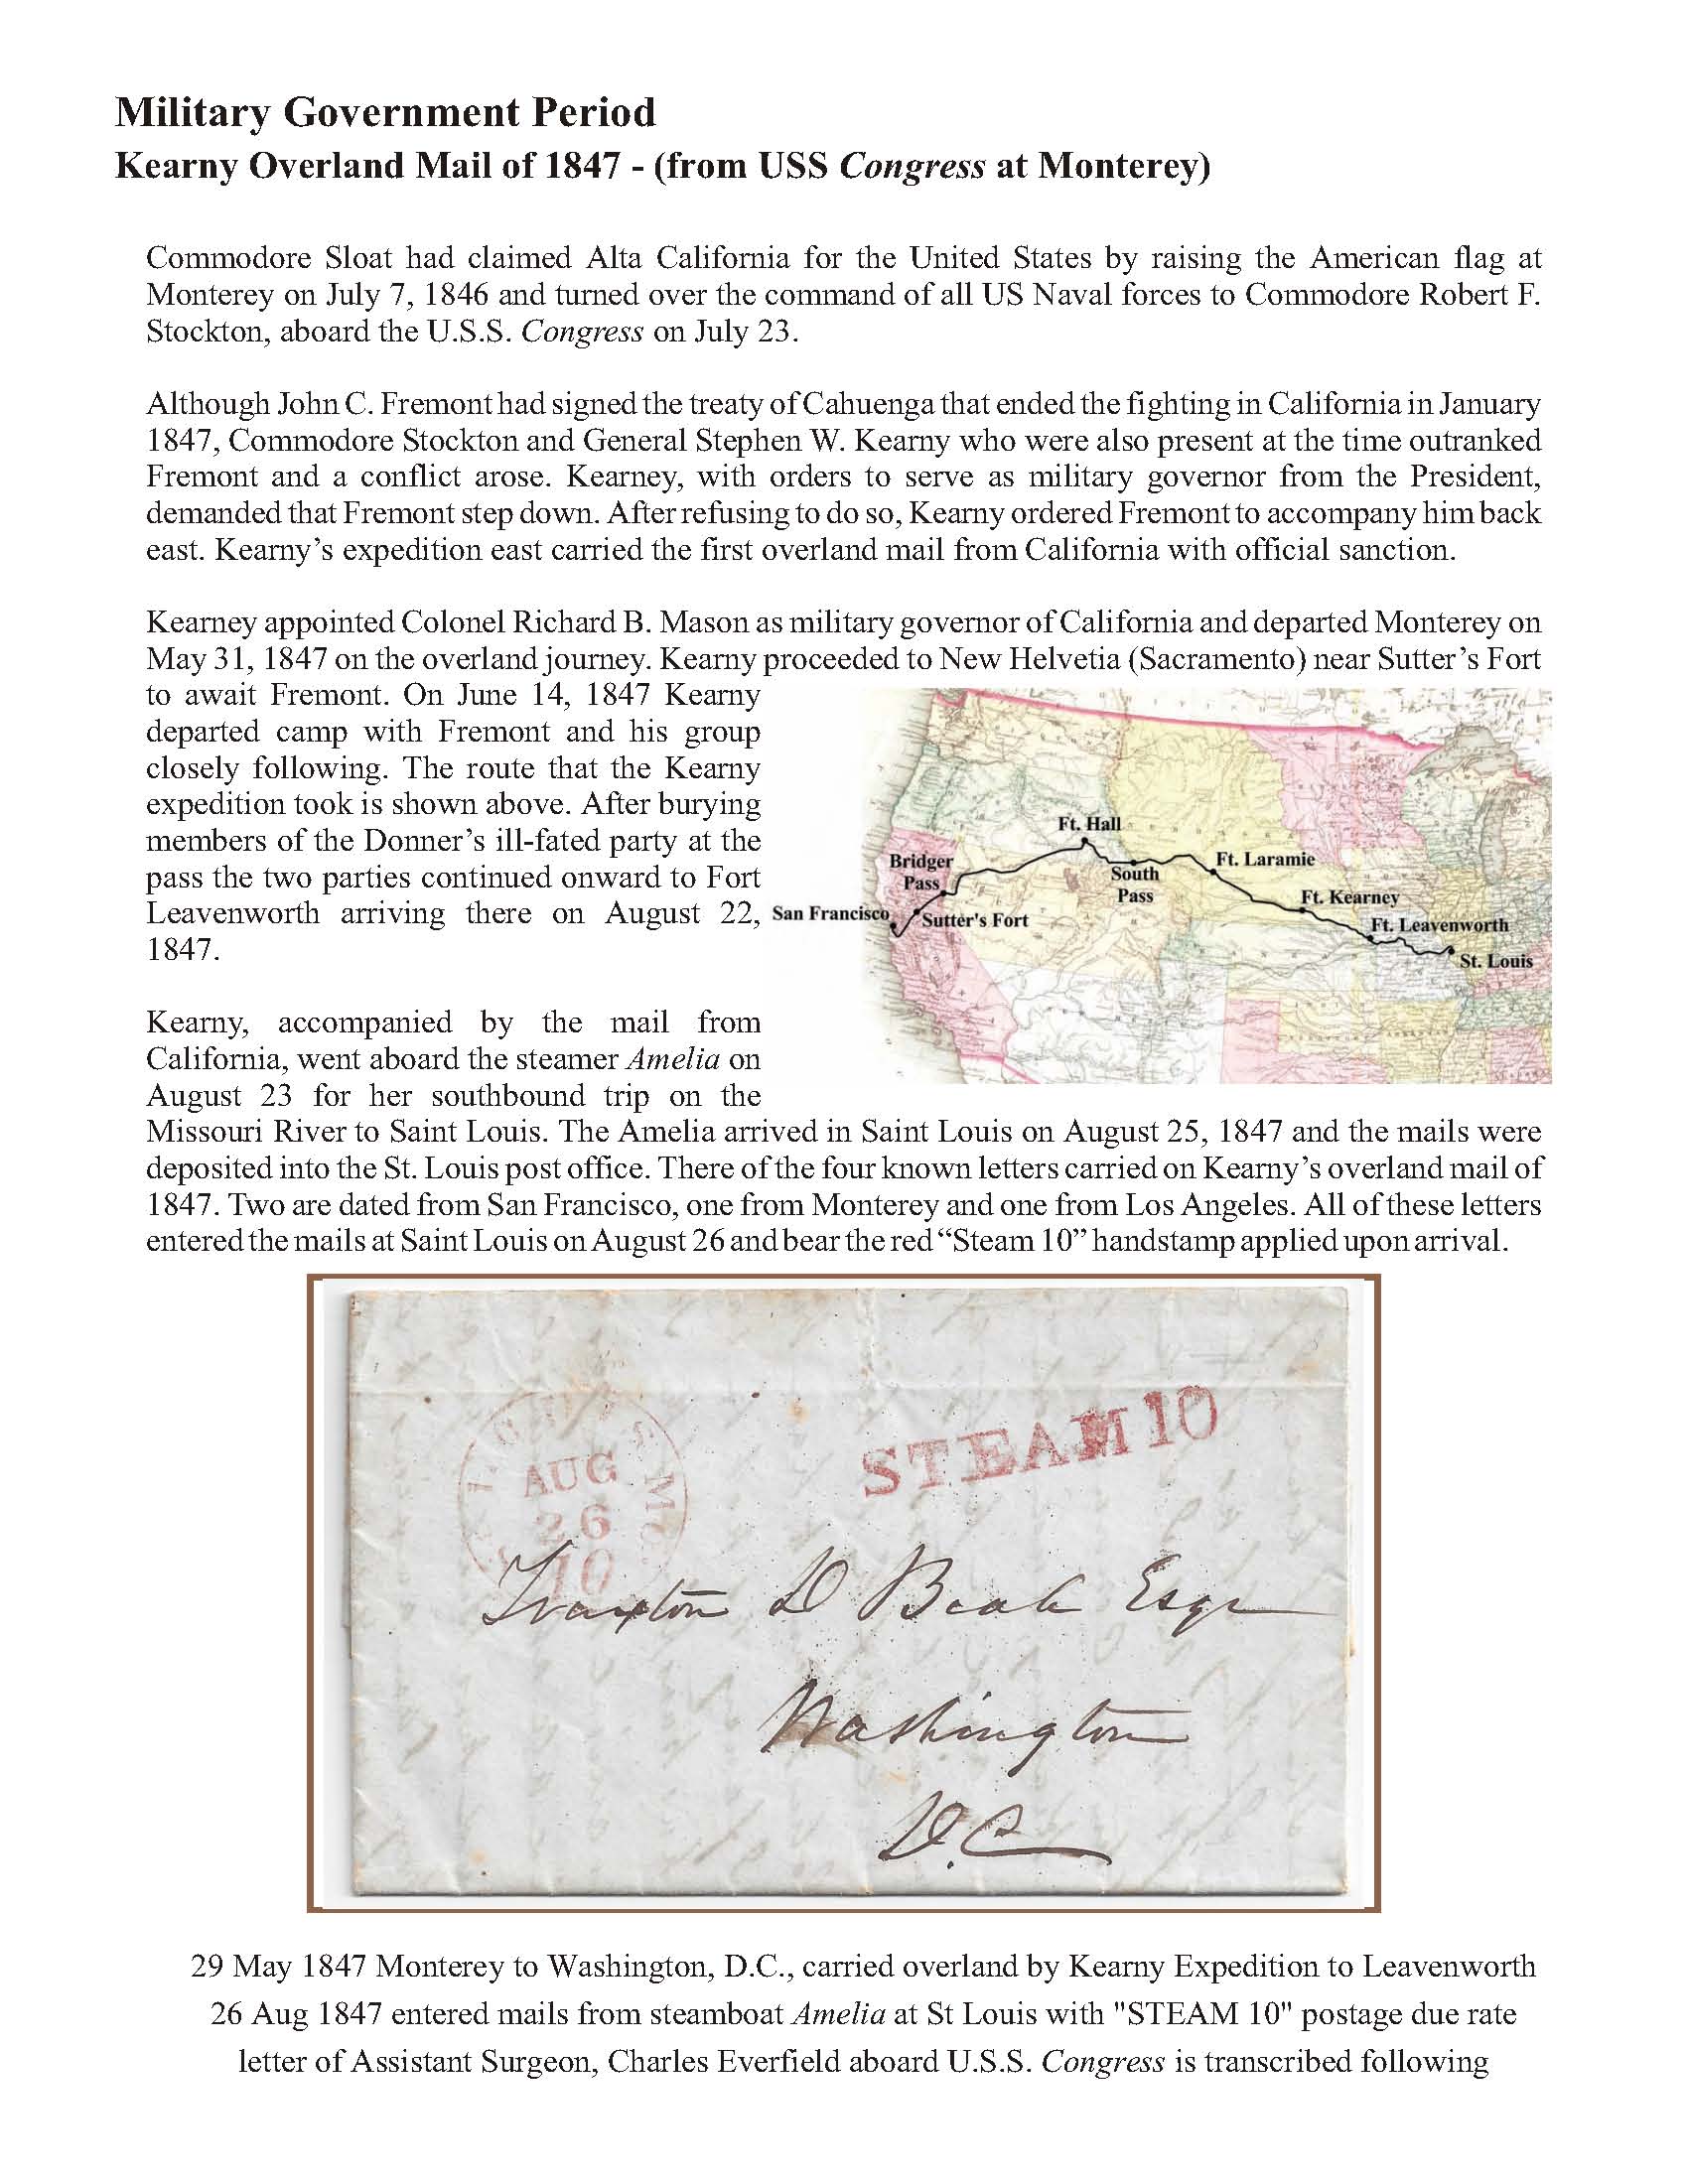 Military Government Period
Kearny Overland Mail of 1847 - (from USS Congress at Monterey)
Commodore Sloat had claimed Alta California for the United States by raising the American flag at
Monterey on July 7, 1846 and turned over the command of all US Naval forces to Commodore Robert F.
Stockton, aboard the U.S.S. Congress on July 23.
Although John C. Fremont had signed the treaty of Cahuenga that ended the fighting in California in January
1847, Commodore Stockton and General Stephen W. Kearny who were also present at the time outranked
Fremont and a conflict arose. Kearney, with orders to serve as military governor from the President,
demanded that Fremont step down. After refusing to do so, Kearny ordered Fremont to accompany him back
east. Kearny’s expedition east carried the first overland mail from California with official sanction.
Kearney appointed Colonel Richard B. Mason as military governor of California and departed Monterey on
May 31, 1847 on the overland journey. Kearny proceeded to New Helvetia (Sacramento) near Sutter’s Fort
to await Fremont. On June 14, 1847 Kearny
departed camp with Fremont and his group
closely following. The route that the Kearny
expedition took is shown above. After burying
members of the Donner’s ill-fated party at the
pass the two parties continued onward to Fort
Leavenworth arriving there on August 22,
1847.
Ft. Hall
Bridger
Pass
South
Pass
Ft. Laramie
Ft. Kearney
San Francisco
Sutter's Fort
Ft. Leavenworth
St. Louis
Kearny, accompanied by the mail from
California, went aboard the steamer Amelia on
August 23 for her southbound trip on the
Missouri River to Saint Louis. The Amelia arrived in Saint Louis on August 25, 1847 and the mails were
deposited into the St. Louis post office. There of the four known letters carried on Kearny’s overland mail of
1847. Two are dated from San Francisco, one from Monterey and one from Los Angeles. All of these letters
entered the mails at Saint Louis on August 26 and bear the red “Steam 10” handstamp applied upon arrival.
AUG
26
10
STEAM 10
D Beale Esqr
Washington
D.C
29 May 1847 Monterey to Washington, D.C., carried overland by Kearny Expedition to Leavenworth
26 Aug 1847 entered mails from steamboat Amelia at St Louis with "STEAM 10" postage due rate
letter of Assistant Surgeon, Charles Everfield aboard U.S.S. Congress is transcribed following